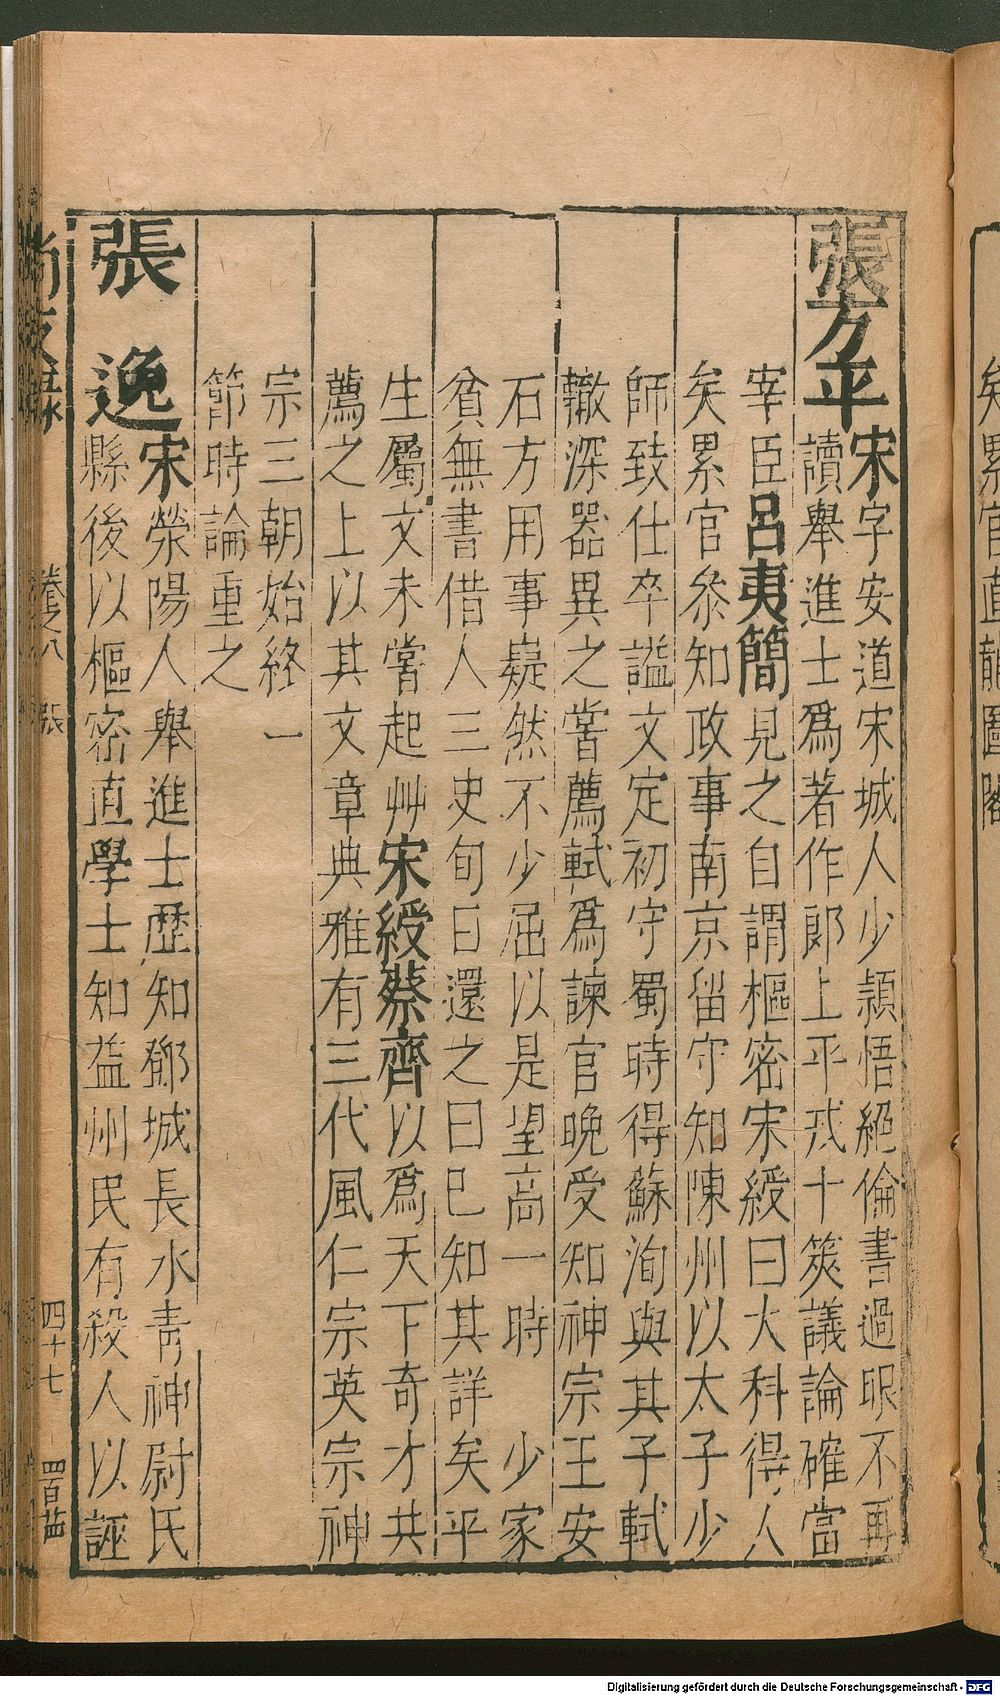 張方平
宋字安道宋城人少穎悟絕倫書過眼不再
讀舉進士爲著作郎上平戎十筴議論確當
宰臣呂夷簡見之自謂樞密宋綬曰大科得人
矣累官叅知政事南京留守知陳州以太子少
師致仕卒謚文定初守蜀時得蘇洵與其子軾
轍深器異之嘗薦軾爲諫官晚受知神宗王安
石方用事嶷然不少屈以是望高一時 少家
貧無書借人三史旬日還之曰已知其詳矣平
生屬文未嘗起艸宋綬蔡齊以爲天下奇才共
薦之上以其文章典雅有三代風仁宗英宗神
宗三朝始終一
節時論重之
張逸
宋滎陽人舉進士歷知鄧城長水青神尉氏
縣後以樞密直學士知益州民有殺人以誣
尚友錄 卷之八 張 四十七
矣累官直龍圖閣
Digitalisierung gefördert durch die Deutsche Forschungsgemeinschaft - DFG